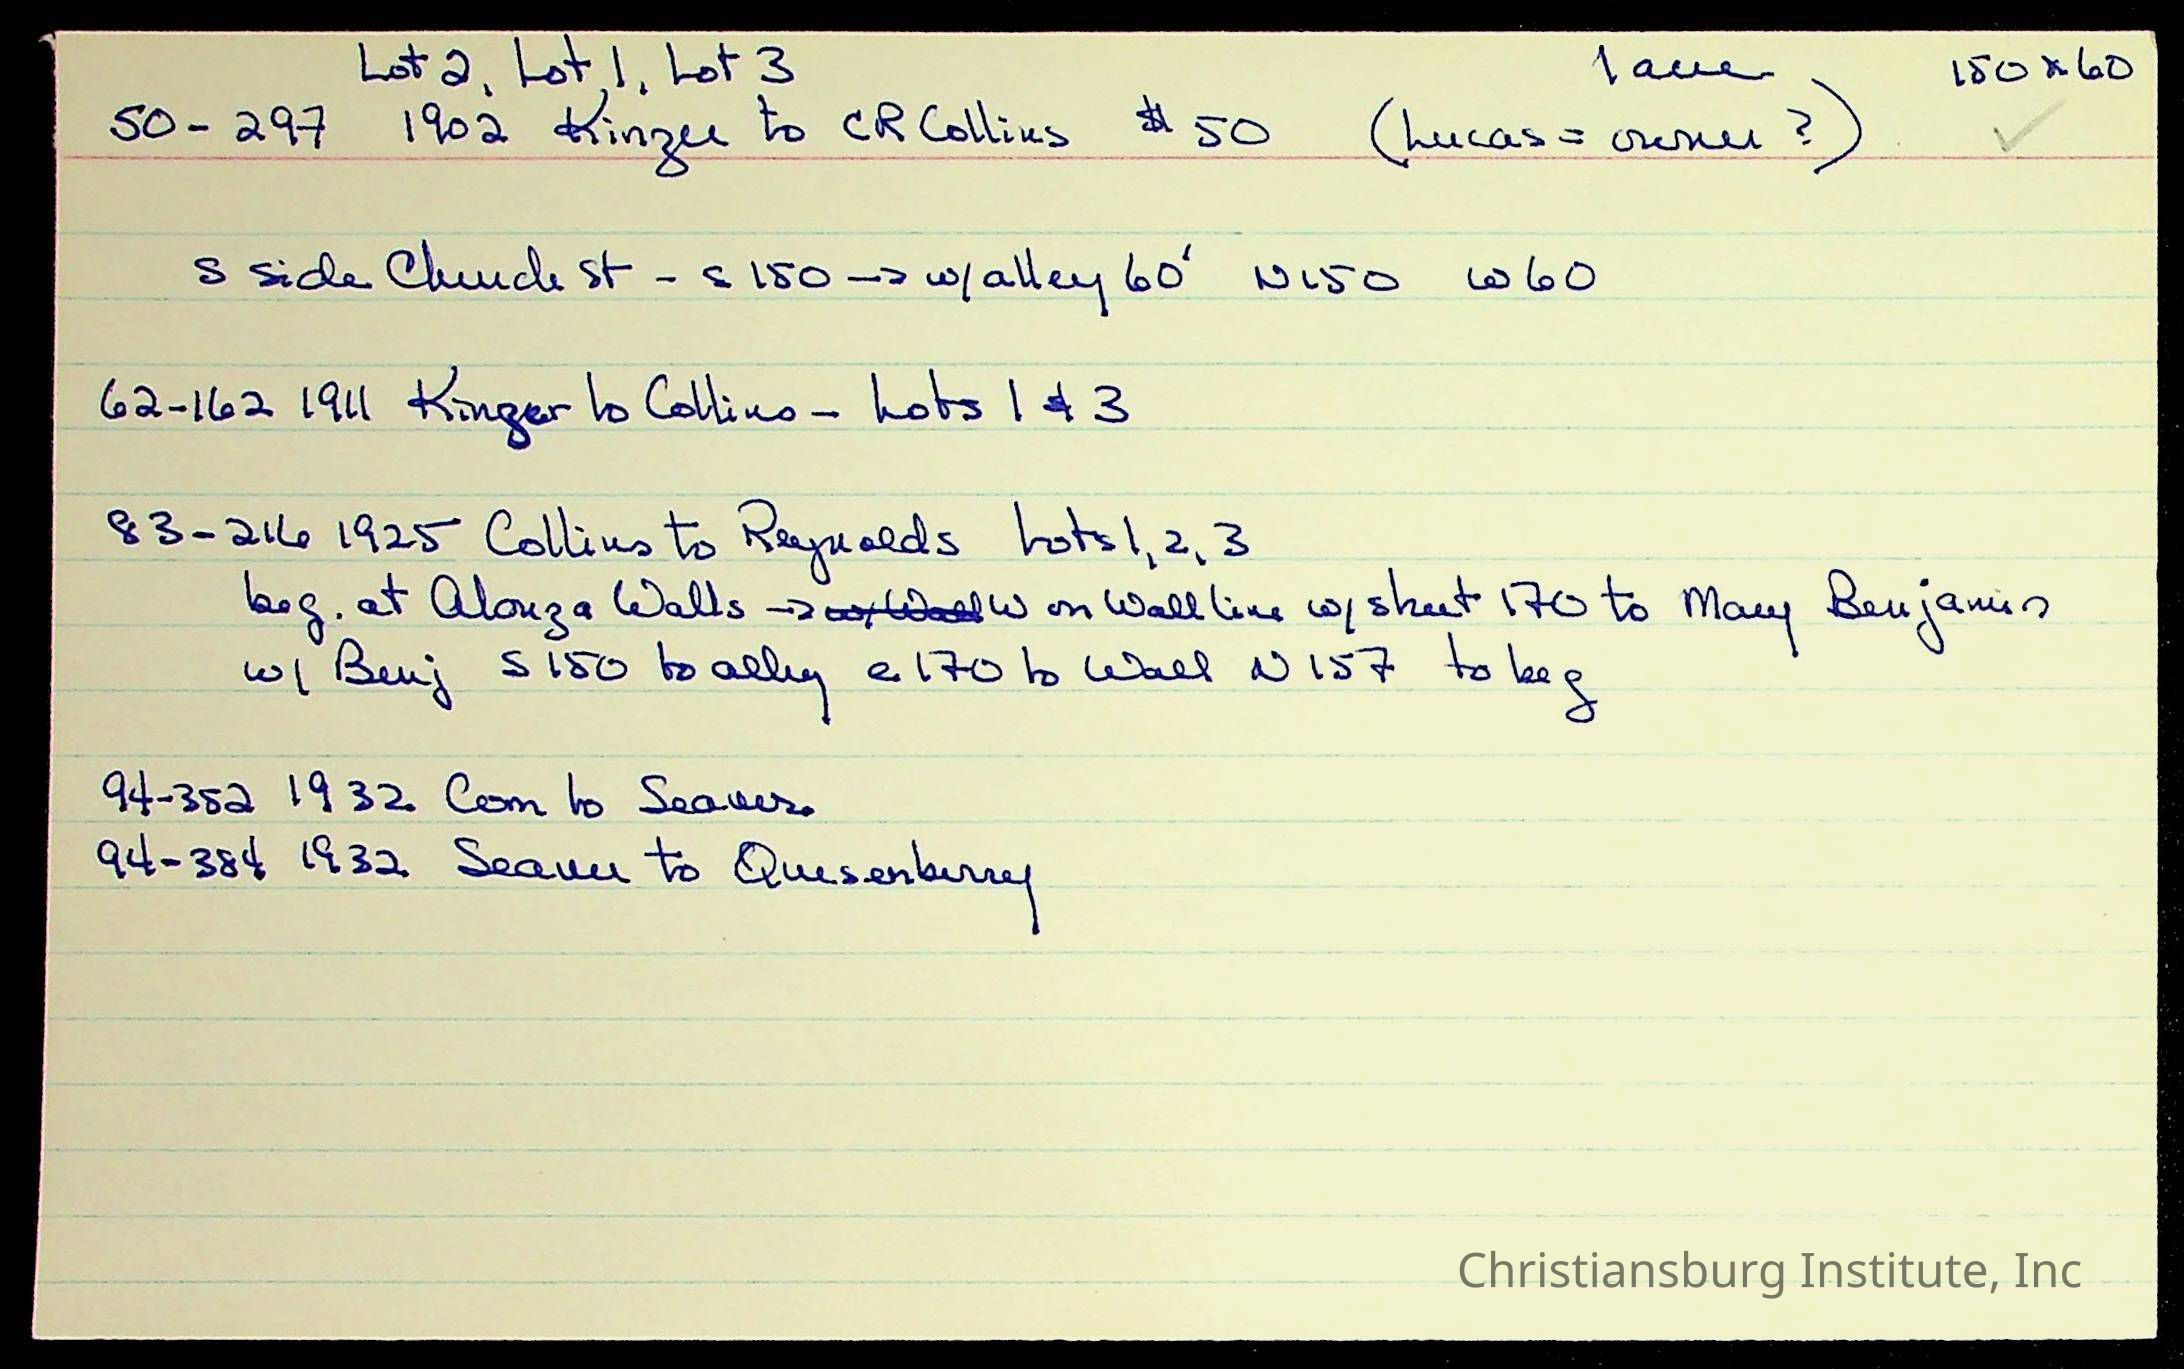 Lot 2, Lot 1, Lot 3 1 acre 150 x 60
50-297 1902 Kinzer to CR Collins $50 (Lucas = owner?)
S side Church St - S 150 → w/ alley 60' N 150 W 60
62-162 1911 Kinzer to Collins - Lots 1 & 3
83-216 1925 Collins to Reynolds Lots 1, 2, 3
beg. at Alonza Walls → W on Wall line w/ street 170 to Mary Benjamin
w/ Benj S 150 to alley e 170 to Wall N 157 to beg
94-352 1932 Com to Seaver
94-384 1932 Seaver to Quesenberry
Christiansburg Institute, Inc